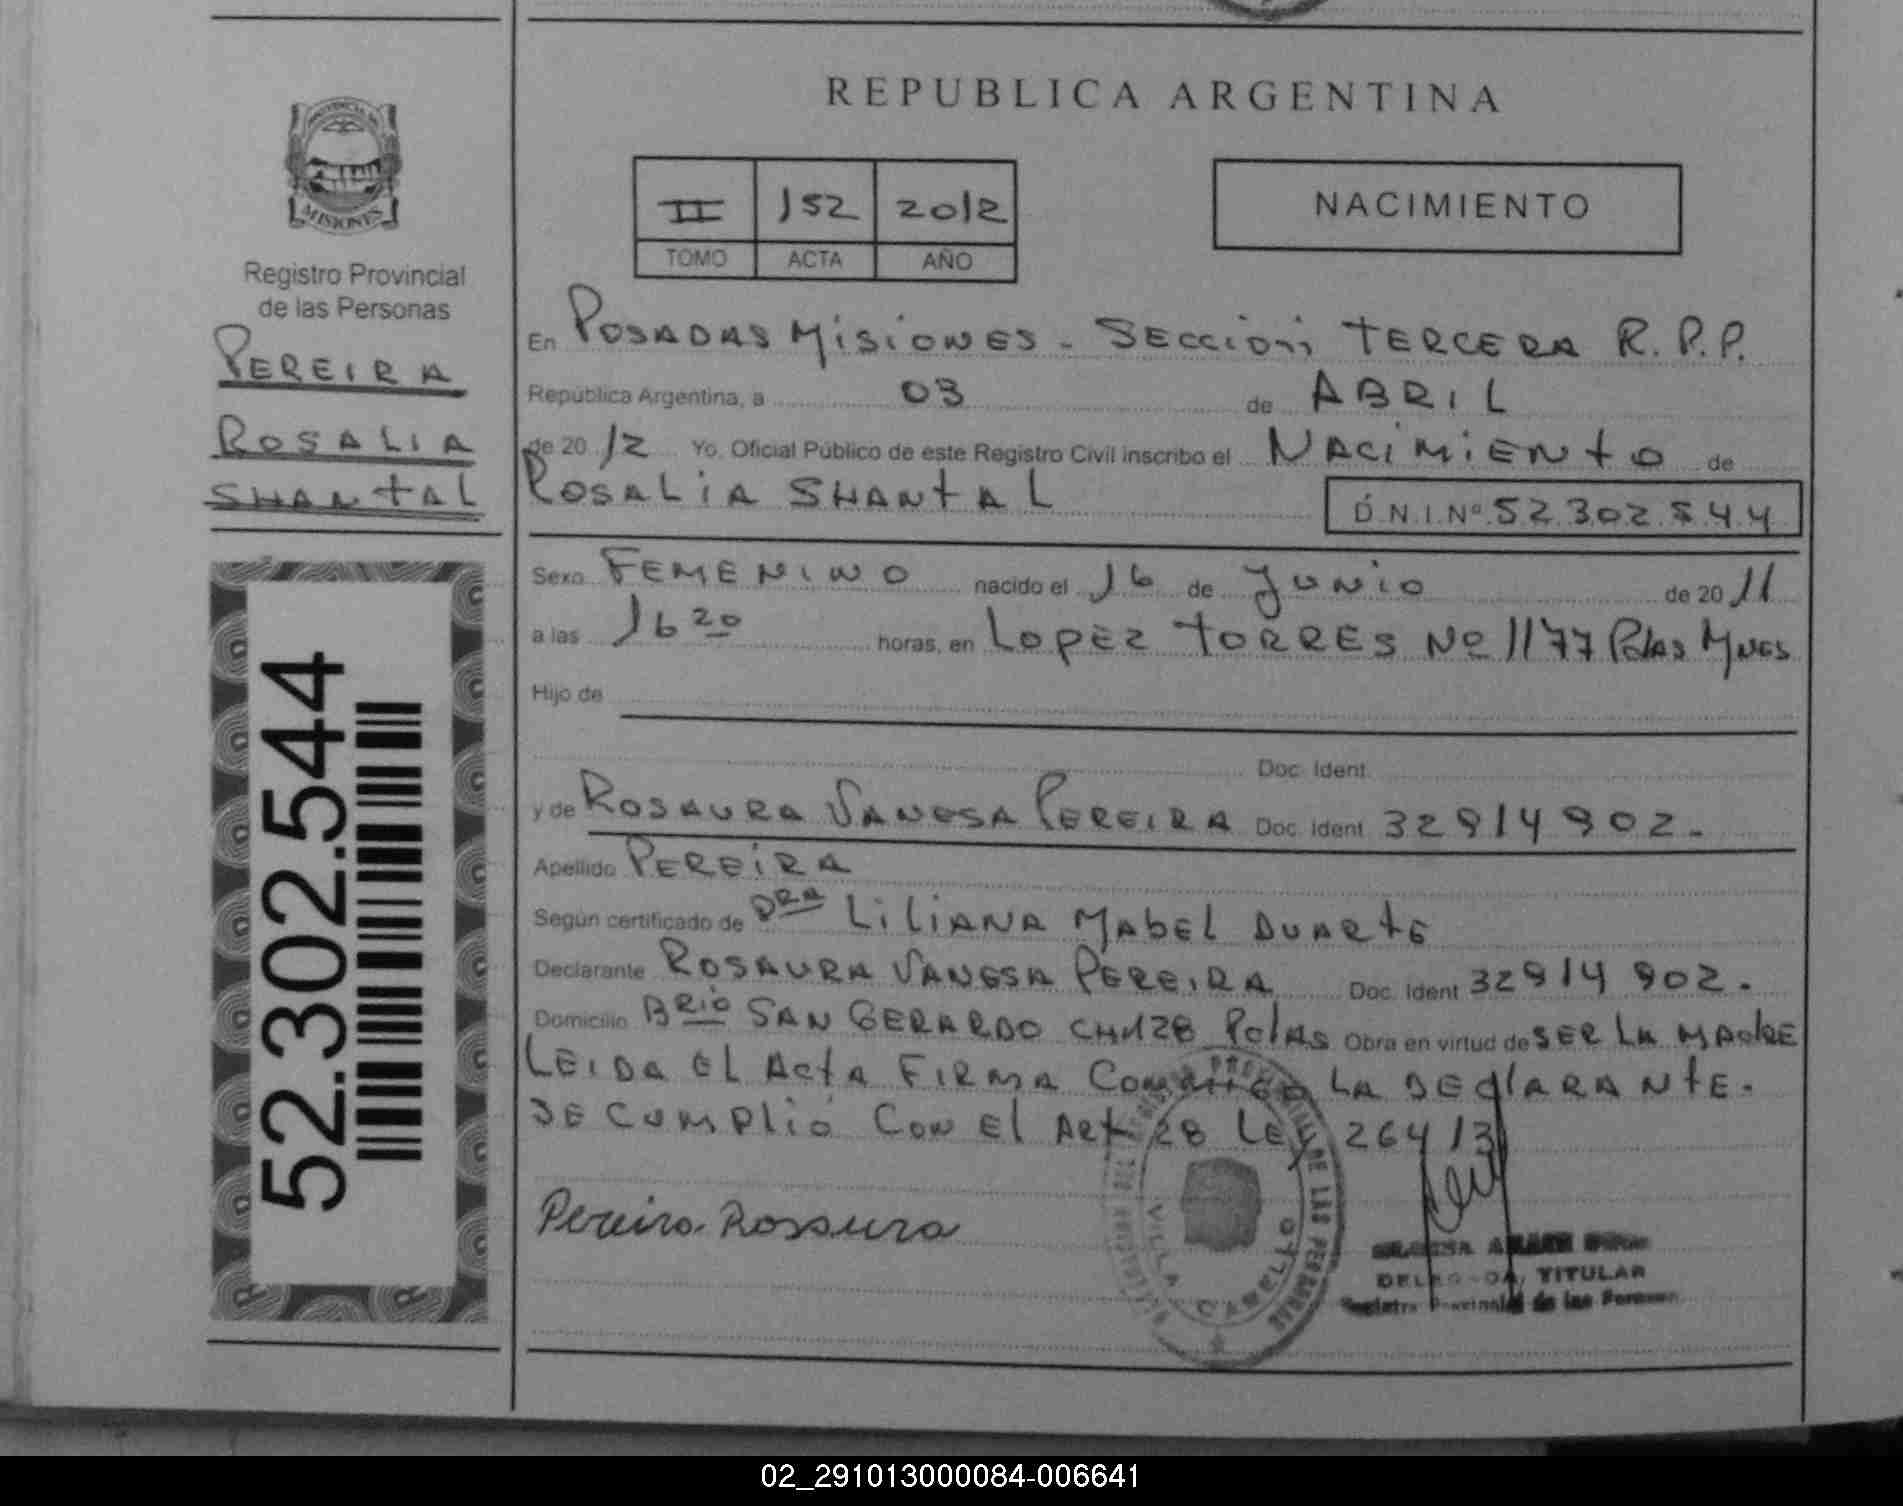 REPUBLICA ARGENTINA
PROVINCIA DE
MISIONES
Registro Provincial
de las Personas
PEREIRA
ROSALIA
SHANTAL
52.302.544
II 152 2012
TOMO ACTA AÑO
NACIMIENTO
En POSADAS MISIONES - SECCION TERCERA R.P.P.
República Argentina, a 03 de ABRIL
de 20 12 Yo, Oficial Público de este Registro Civil inscribo el NACIMIENTO de
ROSALIA SHANTAL D.N.I.Nº 52 302 544
Sexo FEMENINO nacido el 16 de JUNIO de 20 11
a las 16 20 horas, en LOPEZ TORRES Nº 1177 Pdas MNES
Hijo de
Doc. Ident.
y de ROSAURA VANESA PEREIRA Doc. Ident. 32914902.
Apellido PEREIRA
Según certificado de DRA LILIANA MABEL DUARTE
Declarante ROSAURA VANESA PEREIRA Doc. Ident 32914 902.
Domicilio BRIO SAN GERARDO CH128 PdAS Obra en virtud de SER LA MADRE
LEIDA EL ACTA FIRMA CONMIGO LA DECLARANTE.
SE CUMPLIO CON EL ART 28 LEY 26413
Pereira Rosaura
PROVINCIAL DE LAS PERSONAS
VILLA CABELLO
TITULAR
Registro Provincial de las Personas
02_291013000084-006641